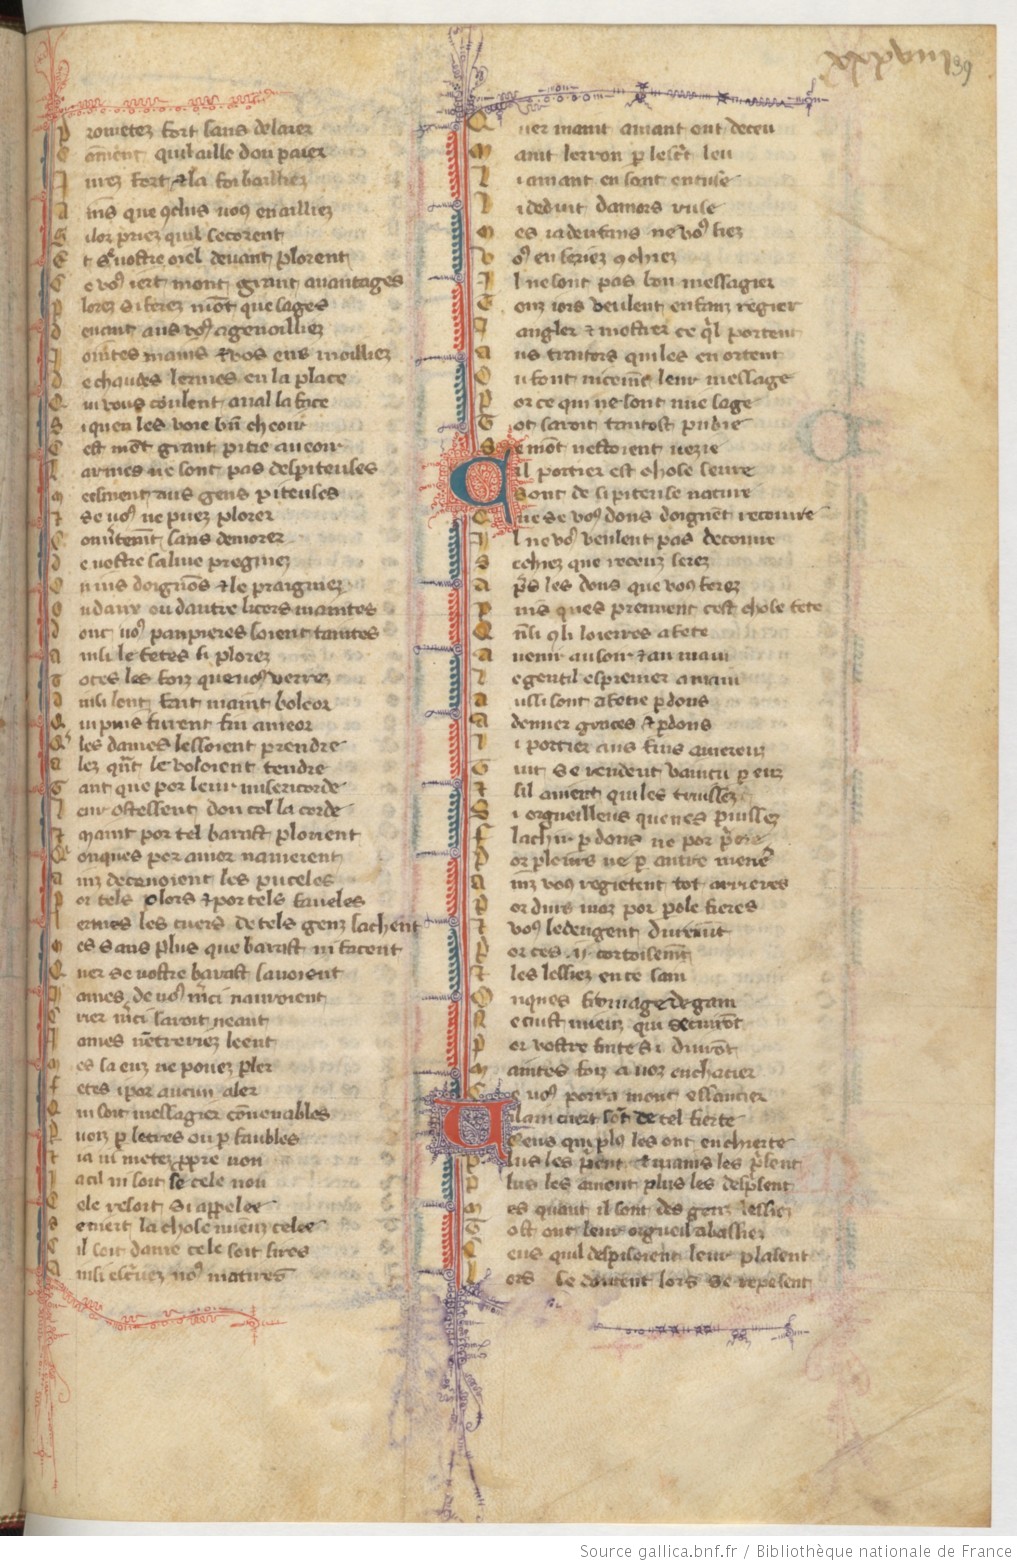 xxxviii 39
Prometez fort sans delaier
Coment quil aille dou paier
Jurez fort ⁊ la foi bailliez
Ains que 9clus uous en ailliez
Si lor priez quil secorent
Et se uostre oiel deuant plorent
Ce vos iert mont grant auantages
Plorez si ferez mot que sages
Deuant aus vos agenoilliez
Jointes mains ⁊ vos eus moilliez
De chaudes lermes en la place
Qui vous coulent aual la face
Si quen les voie bn cheoir
Cest mot grant pitie aueoir
Larmes ne sont pas despiteuses
Meesment aus gens piteuses
Et se uos ne poez plorer
Couertemt sans demorer
De uostre saliue pregniez
Ou ius doignons ⁊ le praigniez
Ou daux ou dautre licors maintes
Dont uos paupieres soient taintes
Ainsi le fetes si plorez
Totes les foiz que uos verrez
Ainsi lont fait maint boleor
Qui puis furent fin ameor
Qles dames lessoient prendre
Alez qnt le voloient tendre
Tant que por leur misericorde
Leur ostessent dou col la corde
Et maint por tel barast plorient
Conques por amor namerent
Ainz deceuoient les puceles
Por tels plors ⁊ por tels faueles
Lermes les cuers de tels genz lachent
Mes sans plus que barast ni sacent
Mes se vostre barast sauoient
James de uos mci nauroient
Crier mci seroit neant
James nentreriez leent
Mes sa euz ne pouez pler
Fetes i por aucun aler
Qui soit messagier couenables
Par uoiz p letres ou p fables
Ja ni metez ppre non
Ja cil ni soit se cele non
Cele resoit cil appelee
Scuert la chose mieuz celee
Cil soit dame cele soit sires
Ainsi escriuez nos matires
Quer maint amant ont deceu
Maint lerron p lescrit leu
Li amant en sont encuse
Li deduit damors ruse
Mes ia denfans ne vos fiez
Vos en seriez 9chiez
Il ne sont pas bon messagier
Touz iors veulent enfanz regier
Jangler ⁊ mostrer ce ql portent
Aus traitors qui les en ortent
Ou font nicemt leur message
Por ce qui ne sont mie sage
Tot seroit tantost pudie
Se mot nestoient uezie
Cil portier est chose seure
Sont de si piteuse nature
Que se vos dons doignent receuure
Il ne vos veulent pas deceuure
Sachiez que receuz serez
Aps les dons que vos ferez
Puis ques prennent cest chose fete
Qnsi 9 li loierres afete
A uenir au soir ⁊ au main
Le gentil espreuier a main
Aussi sont afetie p dons
A donner graces ⁊ pdons
Li portier aus fins amoreus
Tuit se rendent vaincu p eus
Et sil auient qui les truissiez
Si orgueilleus que nes puissiez
Flechir p dons ne por priere
Por pleurs ne p autre meniere
Ainz vos regietent tot arrieres
Por durs moz por pole fieres
Et vos ledengent durement
Partes .ij. cortoisement
Et les lessiez en ce sain
Onques fromage de gain
Ne cuist mieuz qui se cuiront
Por vostre fuite si diuront
Maintes foiz a uoz enchacier
Ce vos porra mont essaucier
Vilain cuer sont de tel fierte
Ceus qui plus les ont en chierte
Plus les prient ⁊ mains les prisent
Plus les aiment plus les desprisent
Mes quant il sont des genz lessiez
Tost ont leur orgueil abessiez
Ceus quil desprisoient leur plaisent
Lors se dontent lors se repesent